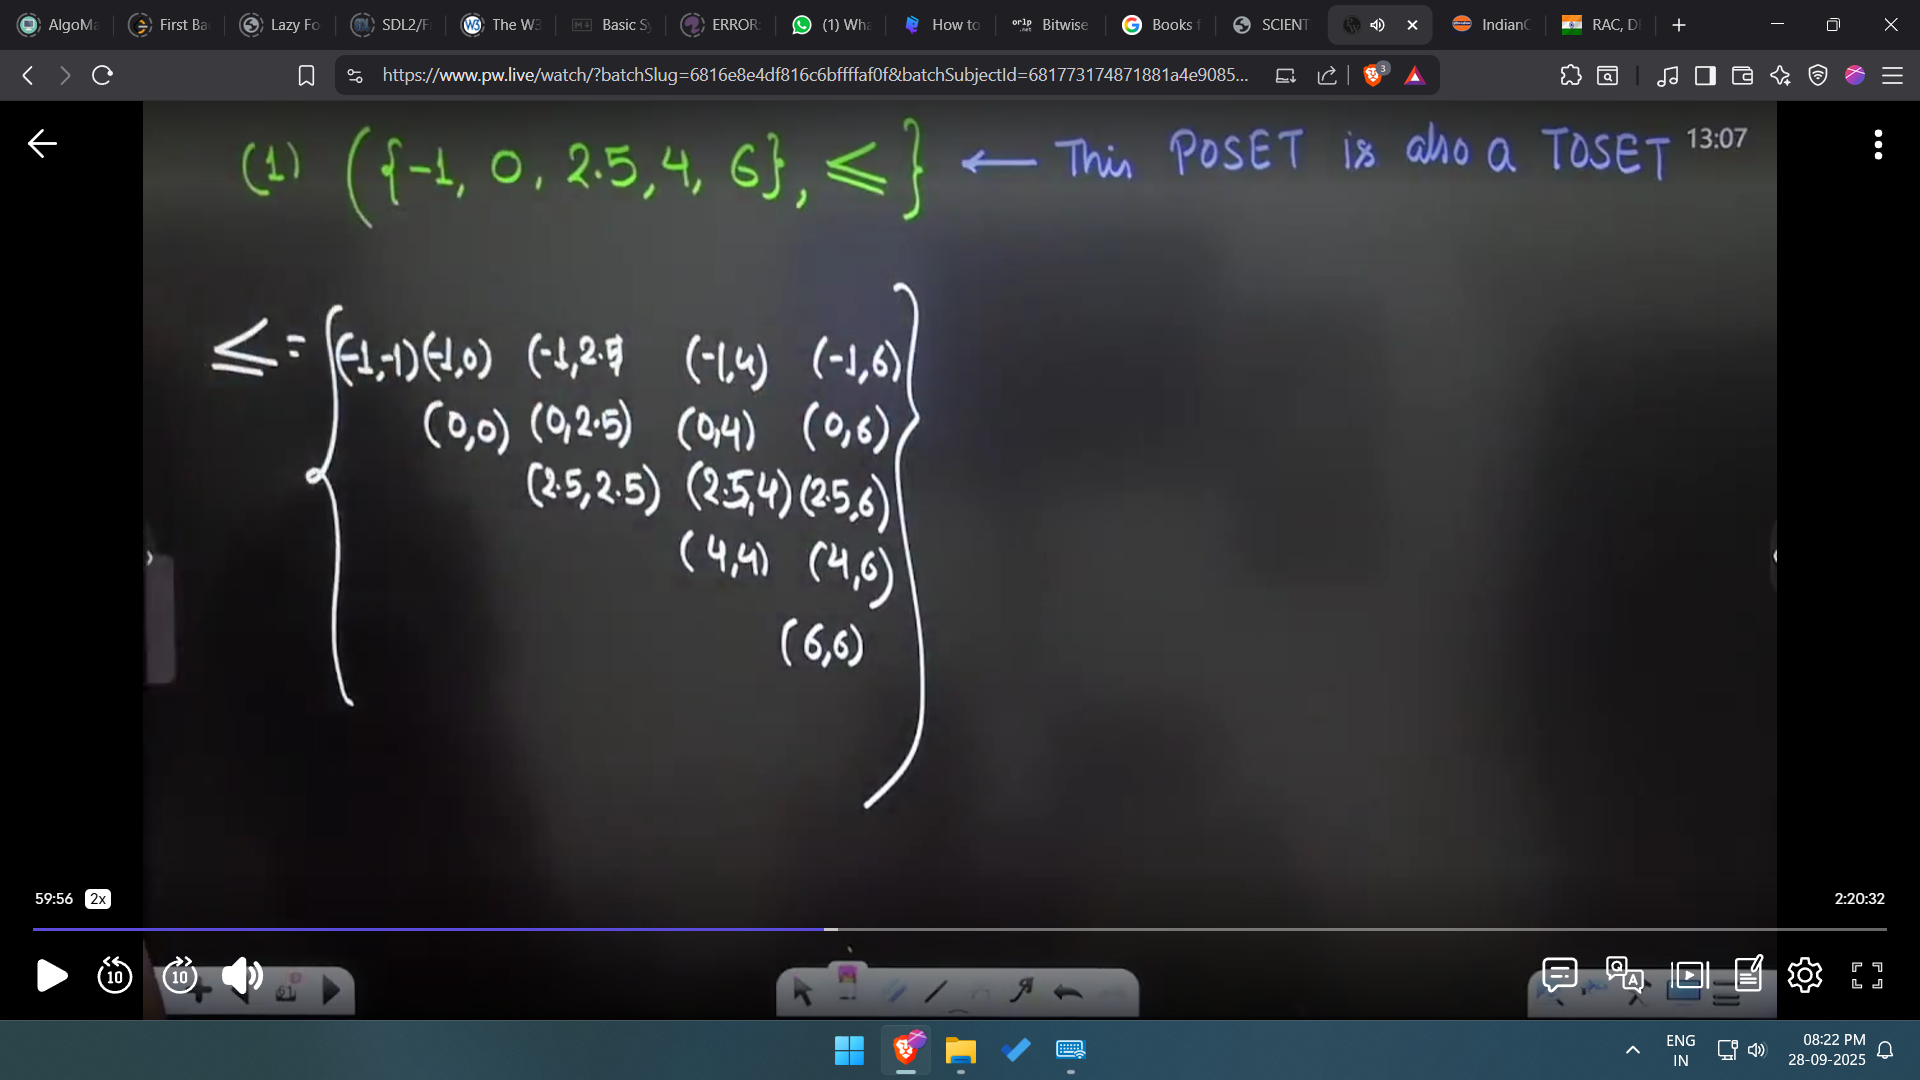 AlgoMa First Ba Lazy Fo SDL2/Fr The W3 Basic Sy ERROR: (1) Wha How to Bitwise Books f SCIENT IndianC RAC, D
https://www.pw.live/watch/?batchSlug=6816e8e4df816c6bffffaf0f&batchSubjectId=681773174871881a4e9085... 3
(1) ({-1, 0, 2.5, 4, 6}, ≤} ← This POSET is also a TOSET 13:07
≤ = {(-1,-1) (-1,0) (-1,2.5 (-1,4) (-1,6)}
(0,0) (0,2.5) (0,4) (0,6)
(2.5,2.5) (2.5,4) (2.5,6)
(4,4) (4,6)
(6,6)
59:56 2x 2:20:32
10 10
61
ENG 08:22 PM
IN 28-09-2025